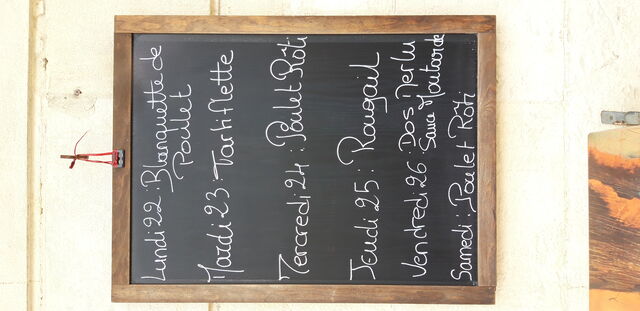 Lundi 22 : Blanquette de
Poulet
Mardi 23 : Tartiflette
Mercredi 24 : Poulet Rôti
Jeudi 25 : Rougail
Vendredi 26 : Dos Merlu
Sauce Moutarde
Samedi : Poulet Rôti